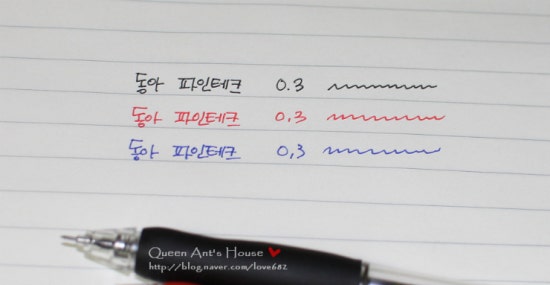 동아 파인테크 0.3
동아 파인테크 0.3
동아 파인테크 0,3
Queen Ant's House
http://blog.naver.com/love682